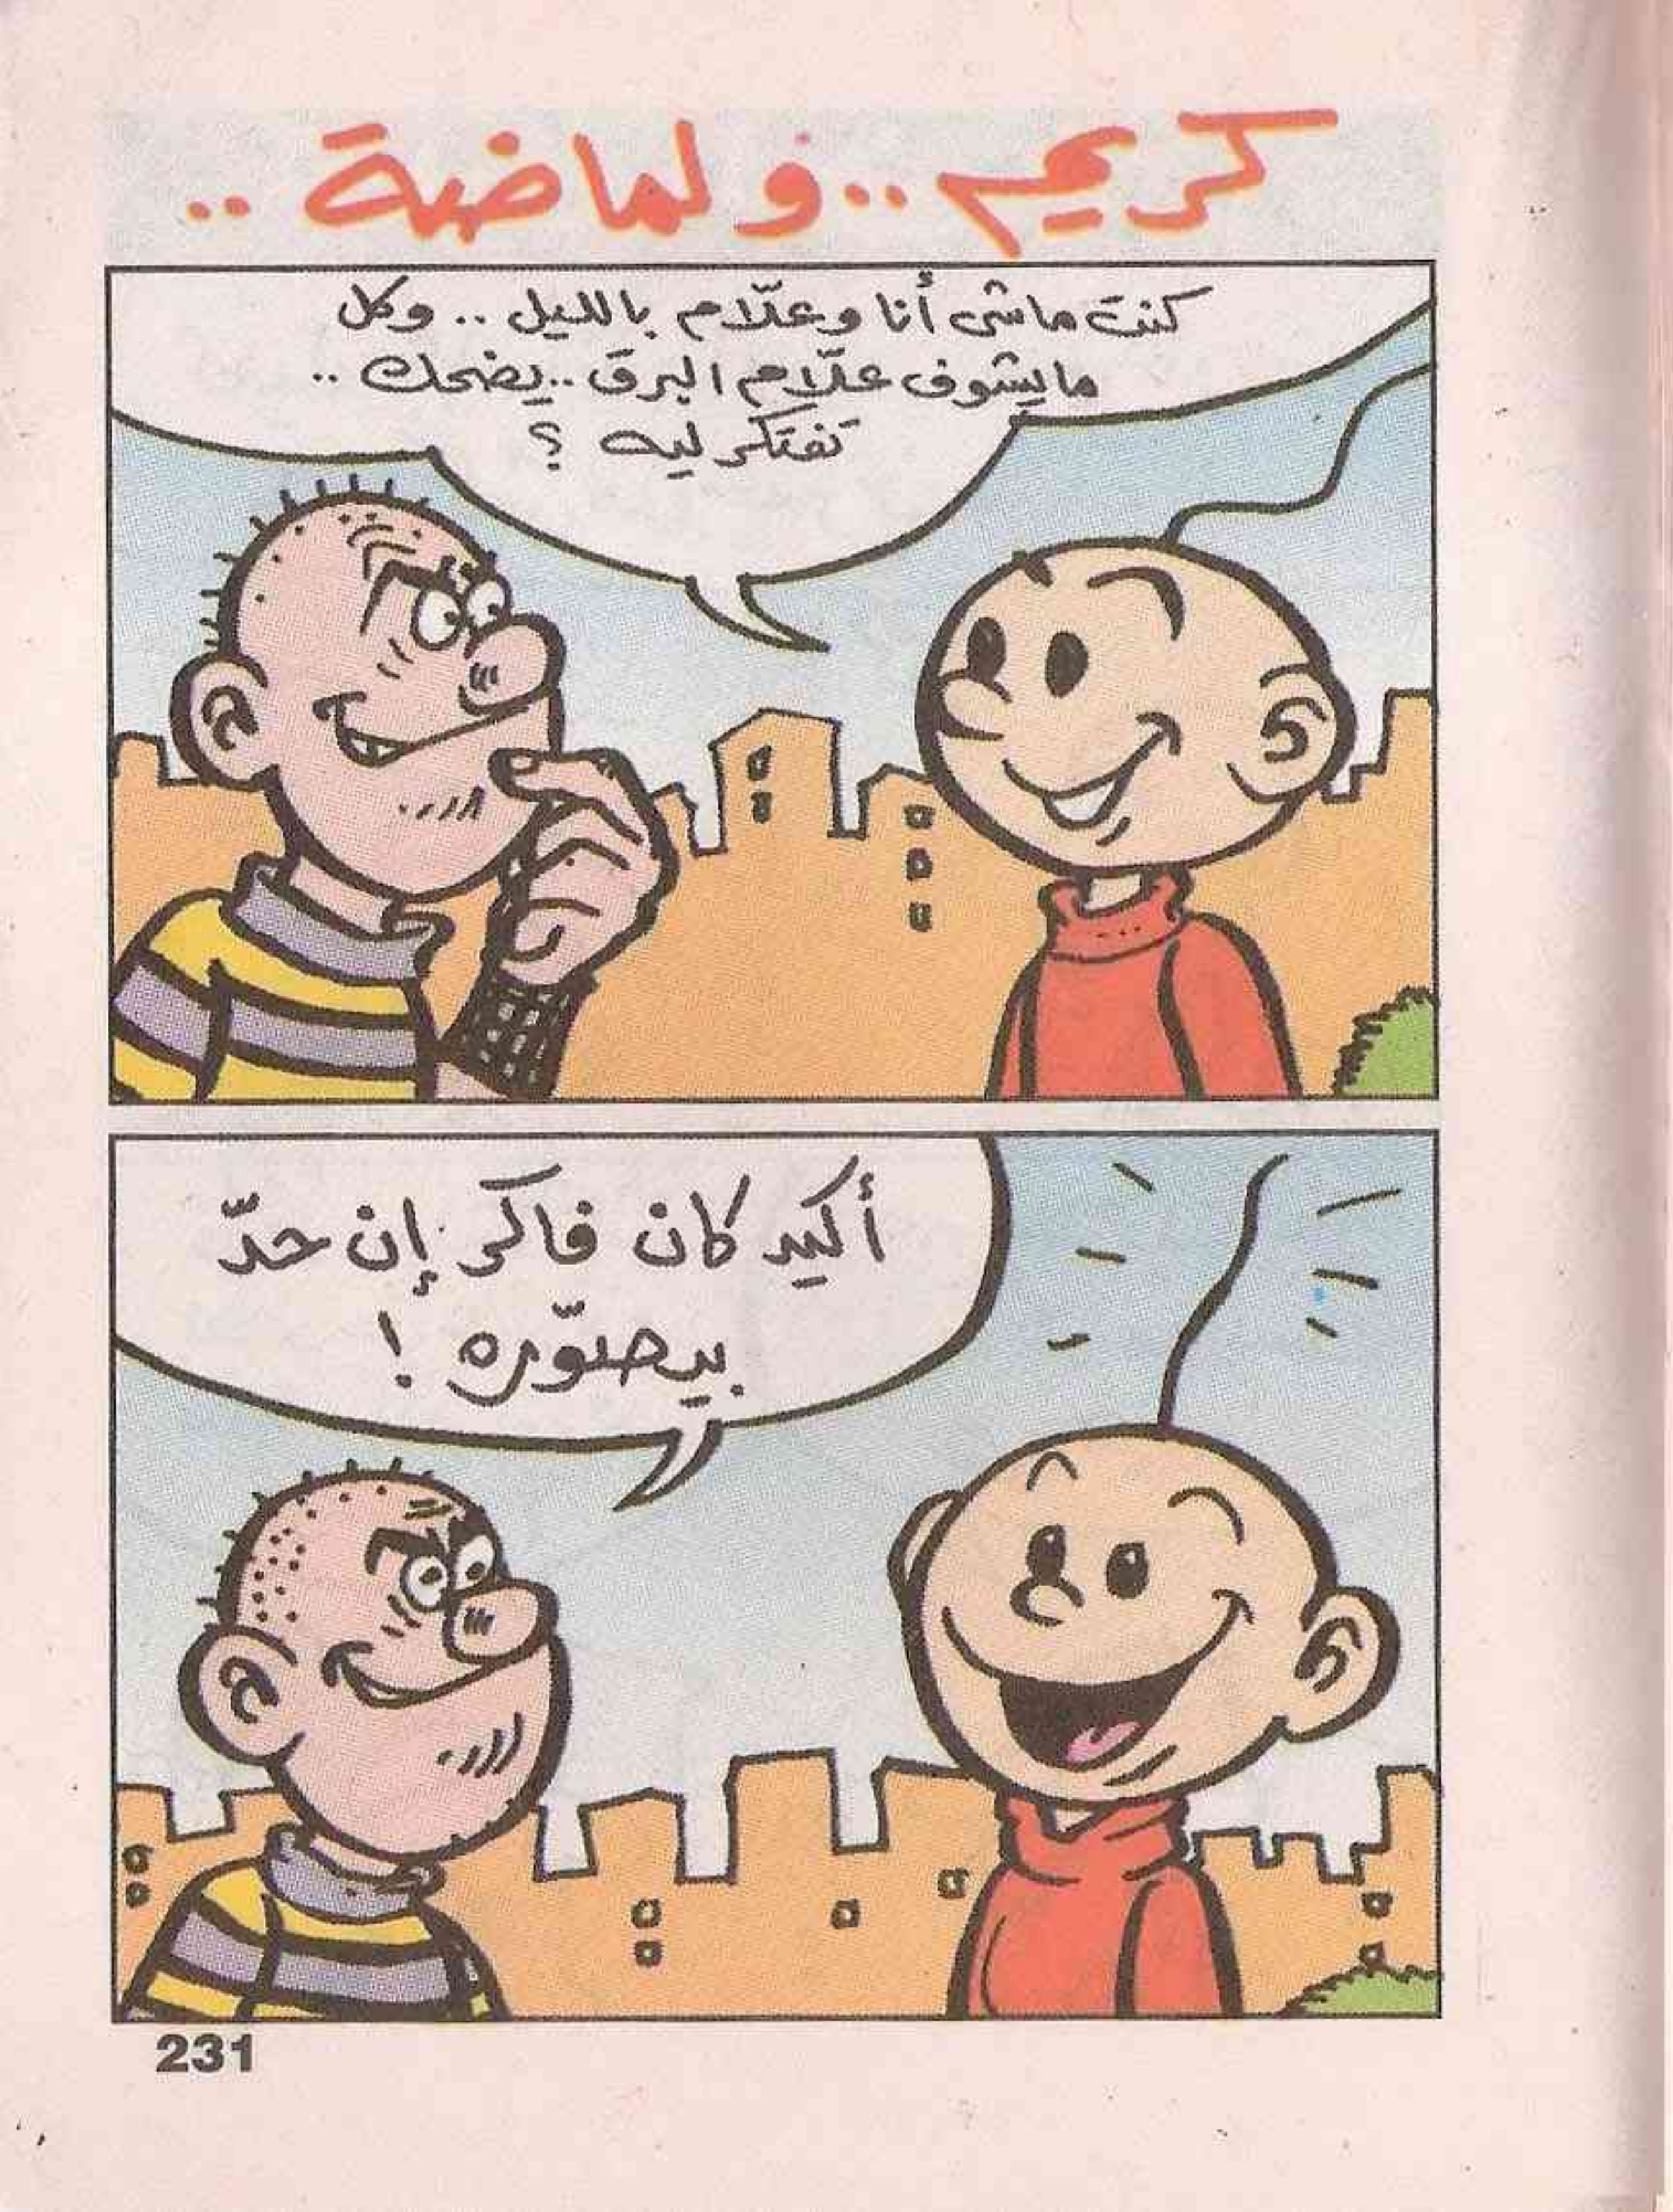 كريم.. و لماضة ..
كنت ماشى أنا وعلّام بالليل .. وكل
مايشوف علّام البرق .. يضحك ..
تفتكر ليه ؟
أكيد كان فاكر إن حدّ
بيصوّره !
231